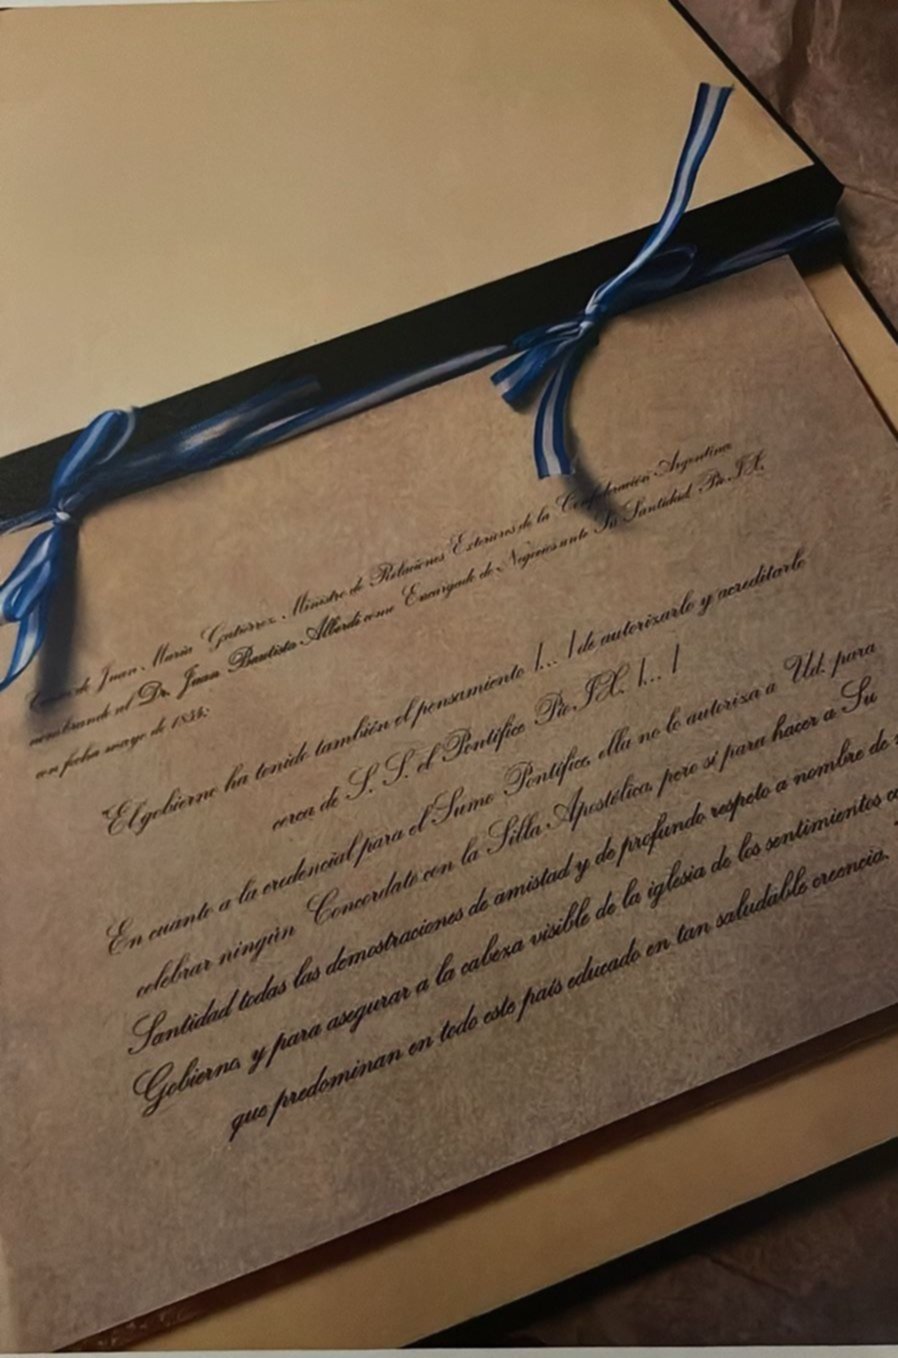 Carta de Juan María Gutiérrez Ministro de Relaciones Exteriores de la Confederación Argentina
nombrando al Dr. Juan Bautista Alberdi como Encargado de Negocios ante Su Santidad Pío IX,
con fecha mayo de 1854:
El gobierno ha tenido también el pensamiento [... ] de autorizarlo y acreditarlo
cerca de S. S. el Pontífice Pío IX. [... ]
En cuanto a la credencial para el Sumo Pontífice, ella no lo autoriza a Ud. para
celebrar ningún Concordato con la Silla Apostólica, pero sí para hacer a Su
Santidad todas las demostraciones de amistad y de profundo respeto a nombre de
Gobierno, y para asegurar a la cabeza visible de la iglesia de los sentimientos
que predominan en todo este país educado en tan saludable creencia.